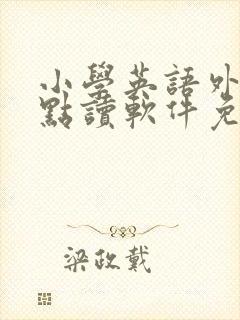 小學英語外
點讀軟件免
梁政戴